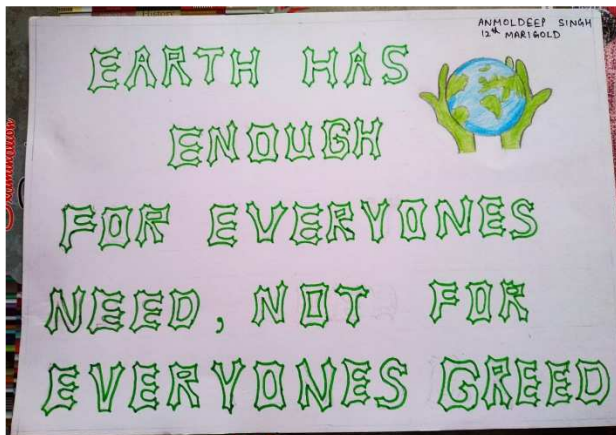 ANMOLDEEP SINGH
12th MARIGOLD
EARTH HAS
ENOUGH
FOR EVERYONES
NEED, NOT FOR
EVERYONES GREED